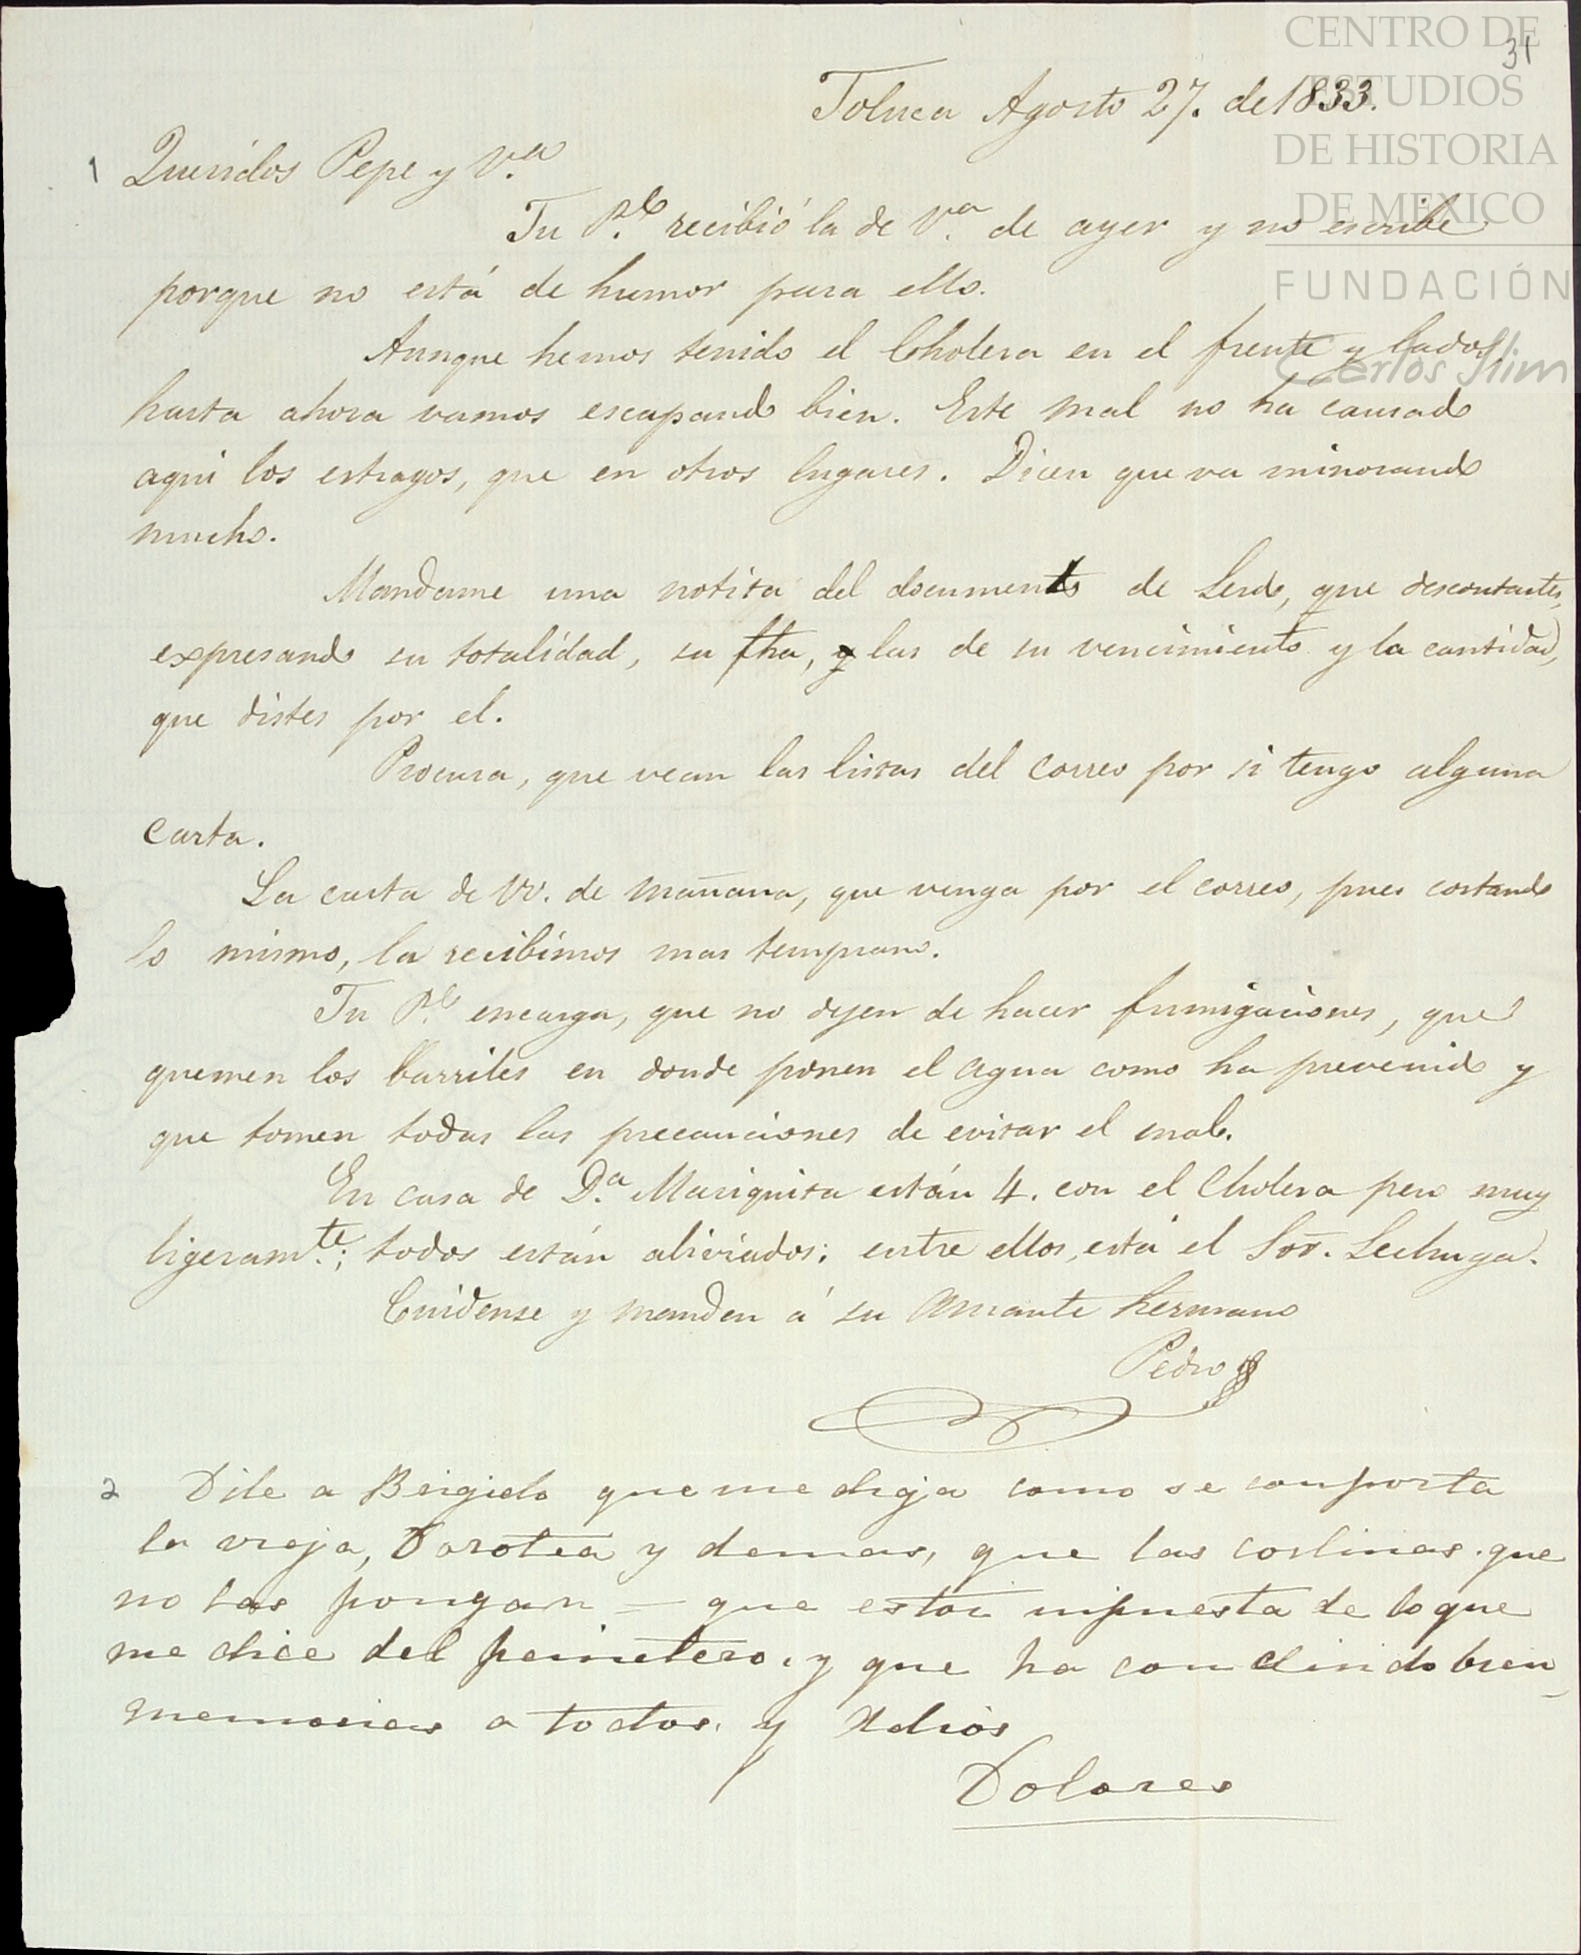 CENTRO DE
ESTUDIOS
DE HISTORIA
DE MÉXICO
FUNDACIÓN
Carlos Slim
31
Toluca Agosto 27. de 1833.
1 Queridos Pepe y V.a
Tu P.e recibió la de V.a de ayer y no escribe
porque no está de humor para ello.
Aunque hemos tenido el Cholera en el frente y lados,
hasta ahora vamos escapando bien. Este mal no ha causado
aqui los estragos, que en otros lugares. Dicen que va minorando
mucho.
Mandame una notita del documento de Lerdo, que descontastes,
expresando su totalidad, su fha, y las de su vencimiento y la cantidad,
que distes por el.
Procura, que vean las listas del correo por si tengo alguna
carta.
La carta de VV. de mañana, que venga por el correo, pues costando
lo mismo, la recibimos mas temprano.
Tu P.e encarga, que no dejen de hacer fumigaciones, que
quemen los barriles en donde ponen el agua como ha prevenido y
que tomen todas las precauciones de evitar el mal.
En casa de D.a Mariquita están 4. con el Cholera pero muy
ligeram.te; todos están aliviados; entre ellos, está el Sor. Lechuga.
Cuidense y manden á su amante hermano
Pedro
2 Dile a Brigido que me diga como se comporta
la vieja, Dorotea y demas, que las cortinas. que
no las pongan — que estoi inpuesta de lo que
me dice del peinetero. y que ha conclindo bien
memorias a todos. y Adios
Dolores